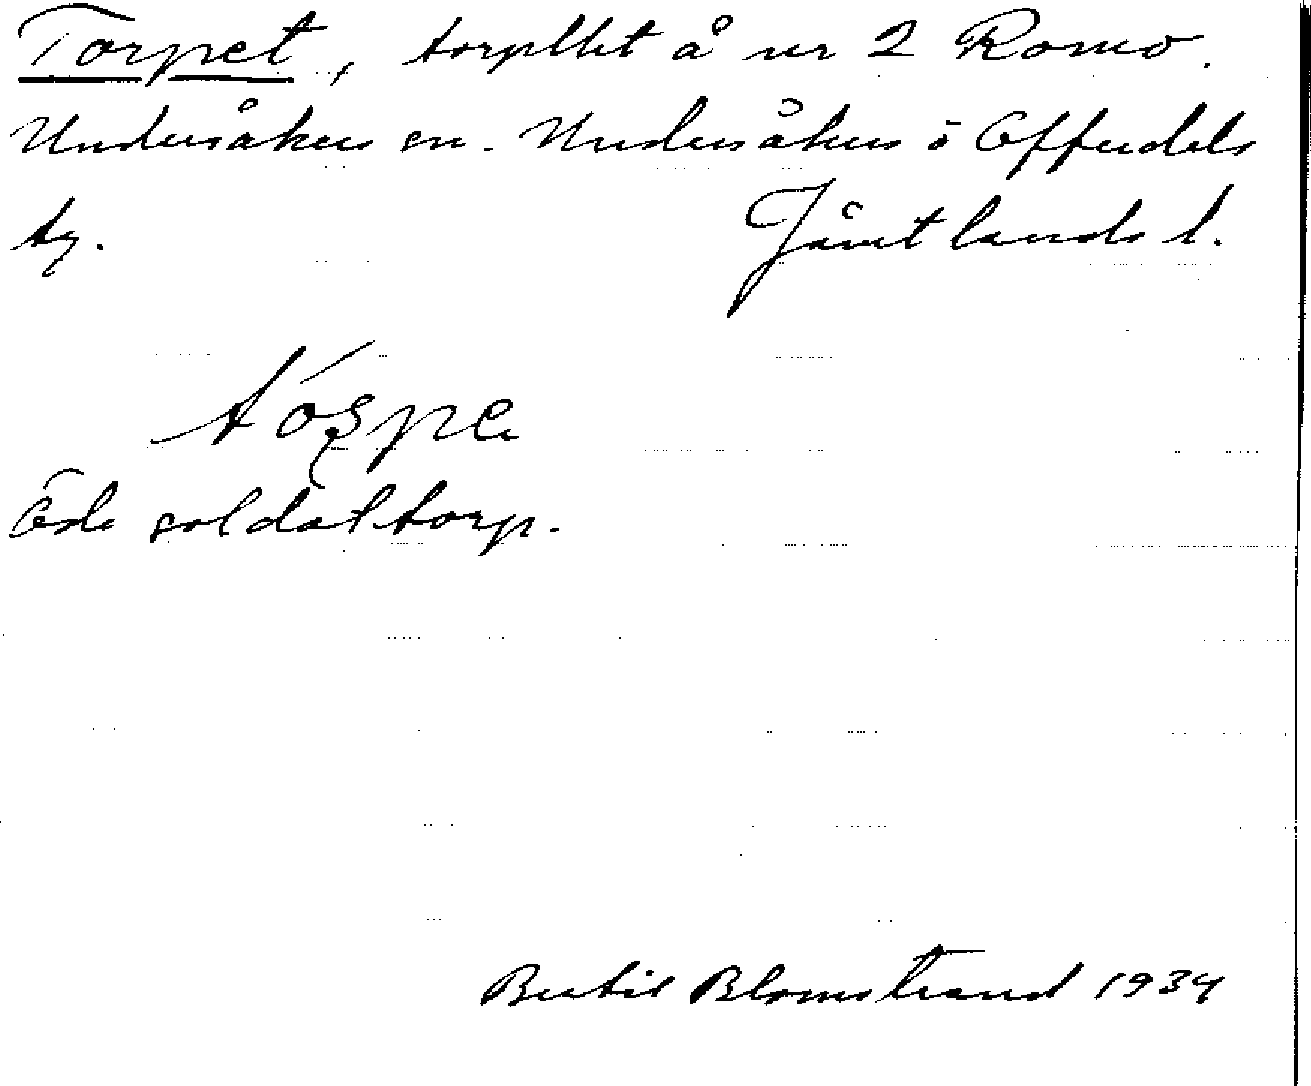 Torpet, å nr 2 Romo.
Undersåkers sn. Undersåkers o Offerdals
tg. Jämtlands l.
Öde soldattorp.
Bertil Blomstrand 1934